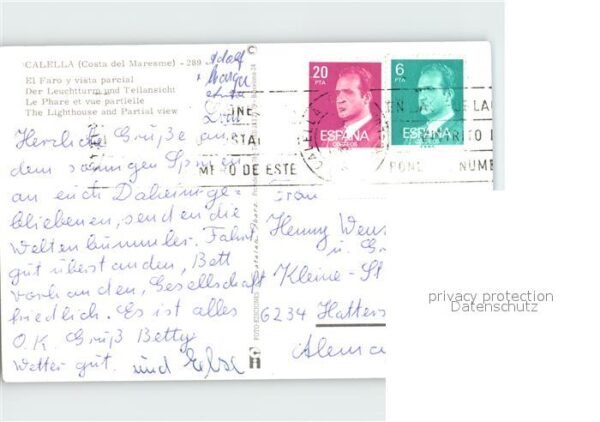 CALELLA (Costa del Maresme) - 289
El Faro y vista parcial
Der Leuchtturm und Teilansicht
Le Phare et vue partielle
The Lighthouse and Partial view
Adolf
20 PTA
ESPAÑA
CORREOS
6 PTA
ESPAÑA
NUME
Herzliche Grüße aus
dem sonnigen Spanien
an euch Daheimge-
bliebenen, senden die
Weltenbummler. Fahrt
gut überstanden, Bett
vorhanden, Gesellschaft
friedlich. Es ist alles
O.K. Gruß Betty
Wetter gut. und Else
FOTO EDICIONES
Frau
Henny
u.
Kleine-St
6234 Hatters
Alema
privacy protection
Datenschutz